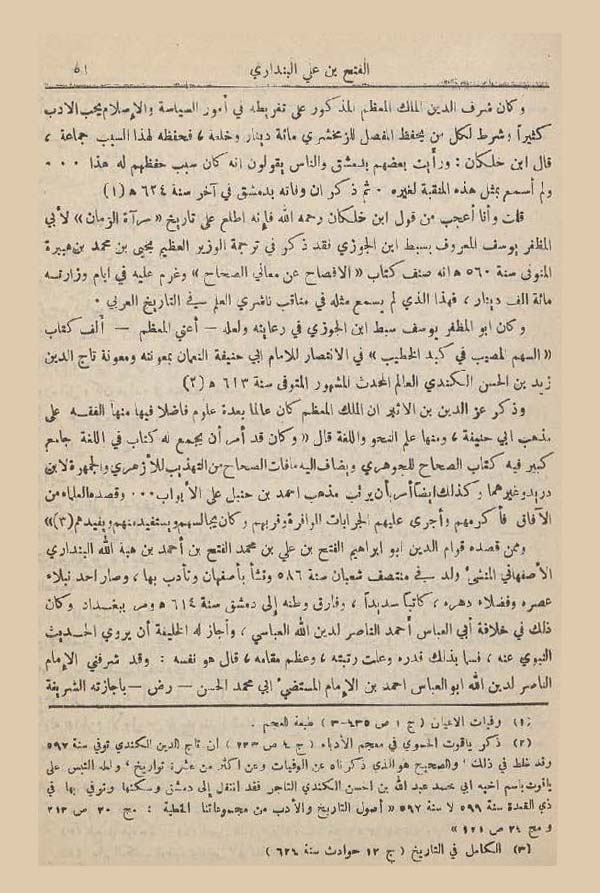 الفتح بن علي البنداري ٥١
وكان شرف الدين الملك المعظم المذكور على تفريطه في أمور السياسة والإسلام يحب الادب
كثيراً وشرط لكل من يحفظ المفصل للزمخشري مائة دينار وخلعة ، فحفظه لهذا السبب جماعة ،
قال ابن خلكان : ورأيت بعضهم بدمشق والناس يقولون انه كان سبب حفظهم له هذا ٠٠٠
ولم أسمع بمثل هذه المنقبة لغيره ٠ ثم ذكر ان وفاته بدمشق في آخر سنة ٦٢٤ ه (١)
قلت وأنا أعجب من قول ابن خلكان رحمه الله فإنه اطلع على تاريخ « مرآة الزمان » لأبي
المظفر يوسف المعروف بسبط ابن الجوزي فقد ذكر في ترجمة الوزير العظيم يحيى بن محمد بن هبيرة
المتوفى سنة ٥٦٠ ه انه صنف كتاب « الافصاح عن معاني الصحاح » وغرم عليه في ايام وزارته
مائة الف دينار ، فهذا الذي لم يسمع مثله في مناقب ناشري العلم في التاريخ العربي ٠
وكان ابو المظفر يوسف سبط ابن الجوزي في رعايته ولعله — أعني المعظم — ألف كتاب
« السهم المصيب في كبد الخطيب » في الانتصار للامام ابي حنيفة النعمان بمعونته ومعونة تاج الدين
زيد بن الحسن الكندي العالم المحدث المشهور المتوفى سنة ٦١٣ ه (٢)
وذكر عز الدين بن الاثير ان الملك المعظم كان عالما بعدة علوم فاضلا فيها منها الفقه على
مذهب ابي حنيفة ، ومنها علم النحو واللغة قال « وكان قد أمر أن يجمع له كتاب في اللغة جامع
كبير فيه كتاب الصحاح للجوهري ويضاف اليه مافات الصحاح من التهذيب للأزهري والجمهرة لابن
دريد وغيرهما وكذلك ايضاً أمر بأن يرتب مذهب احمد بن حنبل على الأبواب ٠٠٠ وقصده العلماء من
الآفاق فأكرمهم وأجرى عليهم الجرايات الوافرة وقربهم وكان يجالسهم ويستفيد منهم ويفيدهم (٣)»
وممن قصده قوام الدين ابو ابراهيم الفتح بن علي بن محمد الفتح بن أحمد بن هبة الله البنداري
الأصفهاني المنشئ ولد في منتصف شعبان سنة ٥٨٦ ونشأ بأصفهان وتأدب بها ، وصار احد نبلاء
عصره وفضلاء دهره ، كاتباً سديداً ، وفارق وطنه إلى دمشق سنة ٦١٤ ه ومر ببغداد وكان
ذلك في خلافة أبي العباس أحمد الناصر لدين الله العباسي ، وأجاز له الخليفة أن يروي الحديث
النبوي عنه ، فسما بذلك قدره وعلت رتبته ، وعظم مقامه ، قال هو نفسه : وقد شرفني الإمام
الناصر لدين الله ابو العباس احمد بن الإمام المستضيء ابي محمد الحسن — رض — بإجازته الشريفة
(١) وفيات الاعيان ( ج ١ ص ٤٣٥-٣ ) طبعة العجم ٠
(٢) ذكر ياقوت الحموي في معجم الأدباء ( ج ٤ ص ٢٢٣ ) ان تاج الدين الكندي توفي سنة ٥٩٧
وقد غلط في ذلك ! والصحيح هو الذي ذكرناه عن الوفيات وعن اكثر من عشرة تواريخ ، ولعله التبس على
ياقوت باسم اخيه ابي محمد عبد الله بن الحسن الكندي التاجر فقد انتقل إلى دمشق وسكنها وتوفي بها في
ذي القعدة سنة ٥٩٩ لا سنة ٥٩٧ « أصول التاريخ والأدب من مجموعاتنا الخطية : مج ٢٠ ص ٢١٣
و مج ٢٤ ص ١٢١ »
(٣) الكامل في التاريخ ( ج ١٢ حوادث سنة ٦٢٤ )